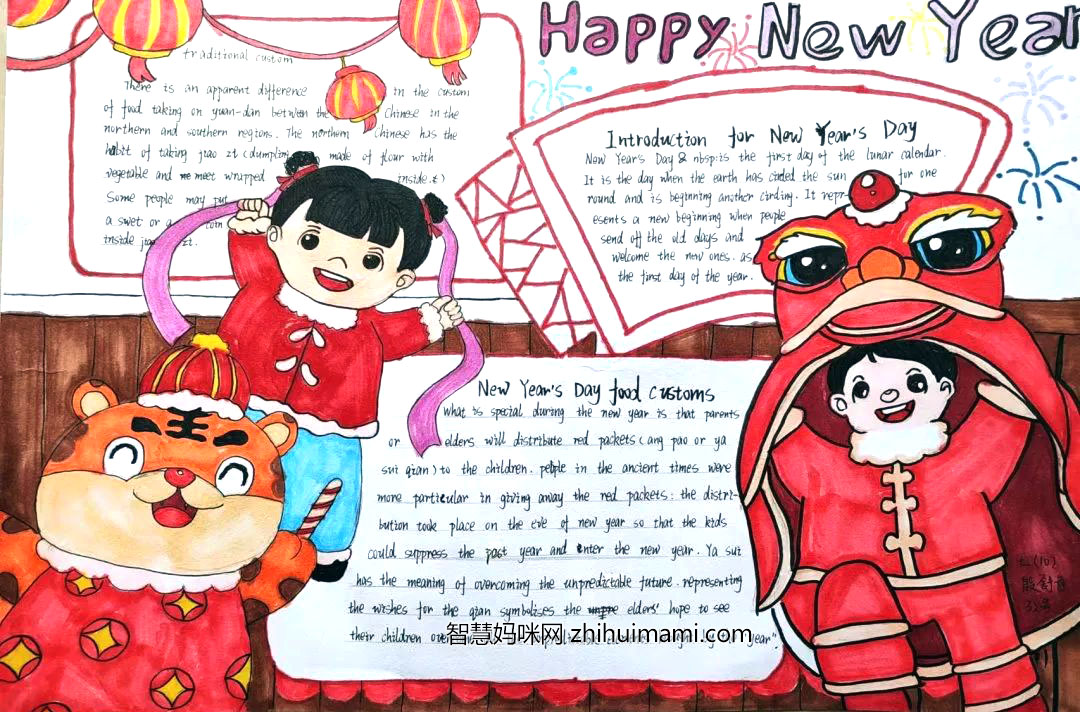 Happy New Year
traditional custom
There is an apparent difference in the custom
of food taking on yuan-dan between the Chinese in the
northern and southern regions. The northern Chinese has the
habit of taking jiao zi (dumpling made of flour with
vegetable and meet wrapped inside.
Some people may put
a swet or a coin
inside jiao zi.
Introduction for New Year's Day
New Year's Day & nbsp:is the first day of the lunar calendar.
It is the day when the earth has circled the sun for one
round and is beginning another circling. It repr-
esents a new beginning when people
send off the old days and
welcome the new ones. as
the first day of the year.
New Year's Day food customs
what is special during the new year is that parents
or elders will distribute red packets (ang pao or ya
sui qian) to the children. people in the ancient times were
more particular in giving away the red packets: the distri-
bution took place on the eve of new year so that the kids
could suppress the past year and enter the new year. Ya sui
has the meaning of overcoming the unpredictable future. representing
the wishes for the qian symbolises the elders' hope to see
their children year".
智慧妈咪网 zhihuimami.com
王